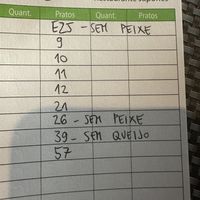 Restaurante Japonês
Quant. Pratos Quant. Pratos
EZ5 - SEM PEIXE
9
10
11
12
21
26 - SEM PEIXE
39 - SEM QUEIJO
57